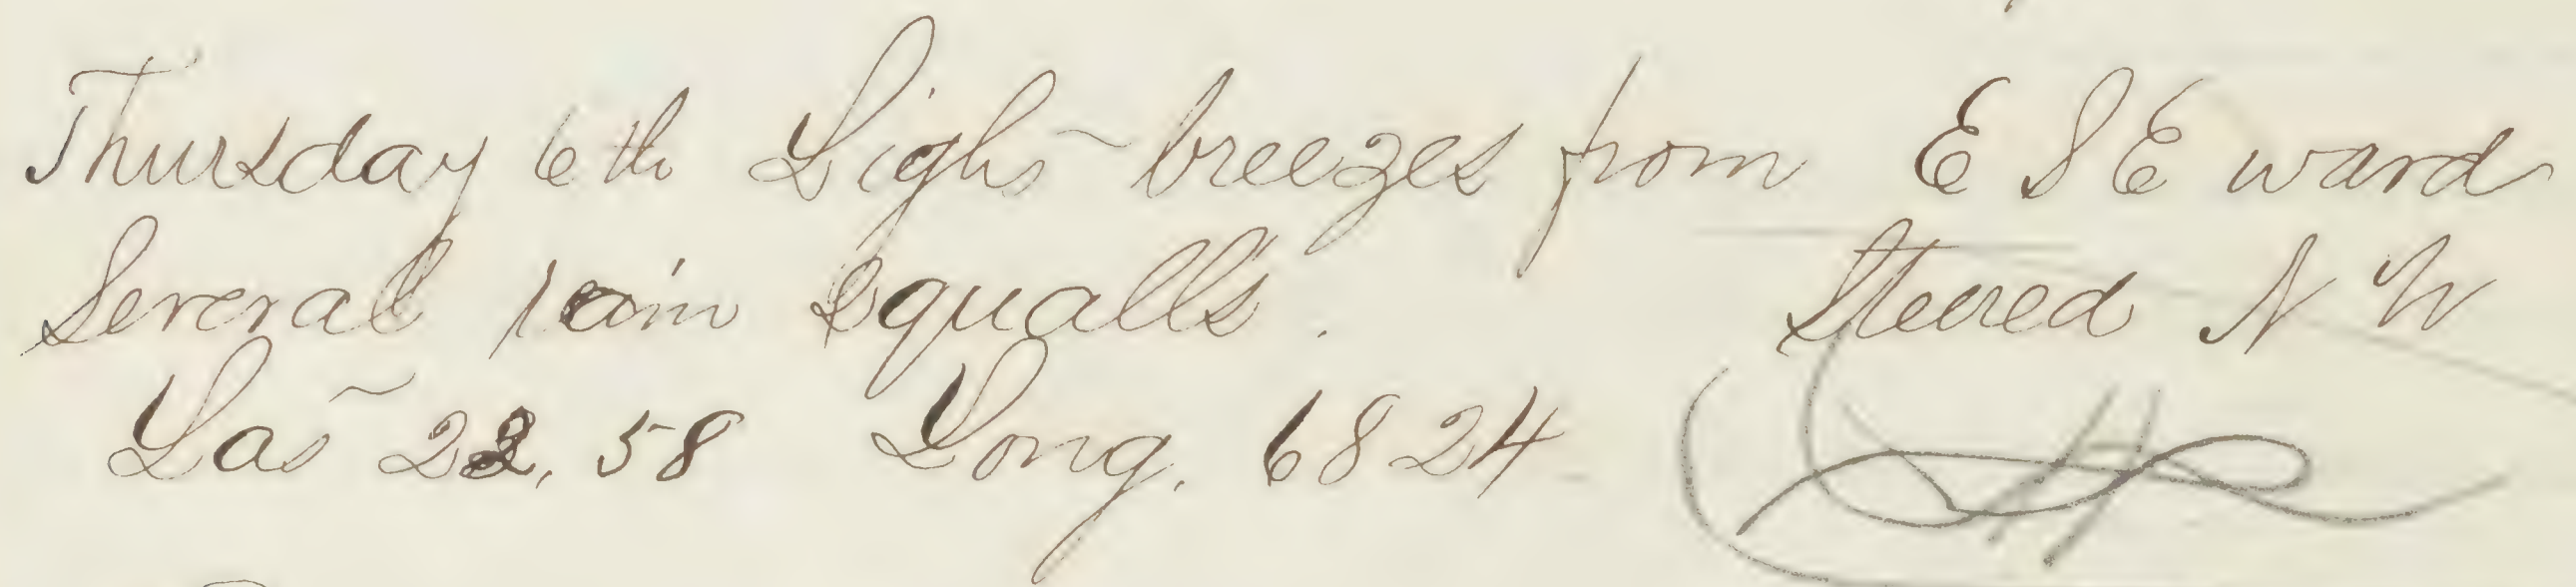 Thursday 6th Light breezes from E S E ward
Several rain squalls. Steered N W
Lat 22, 58 Long, 68 24